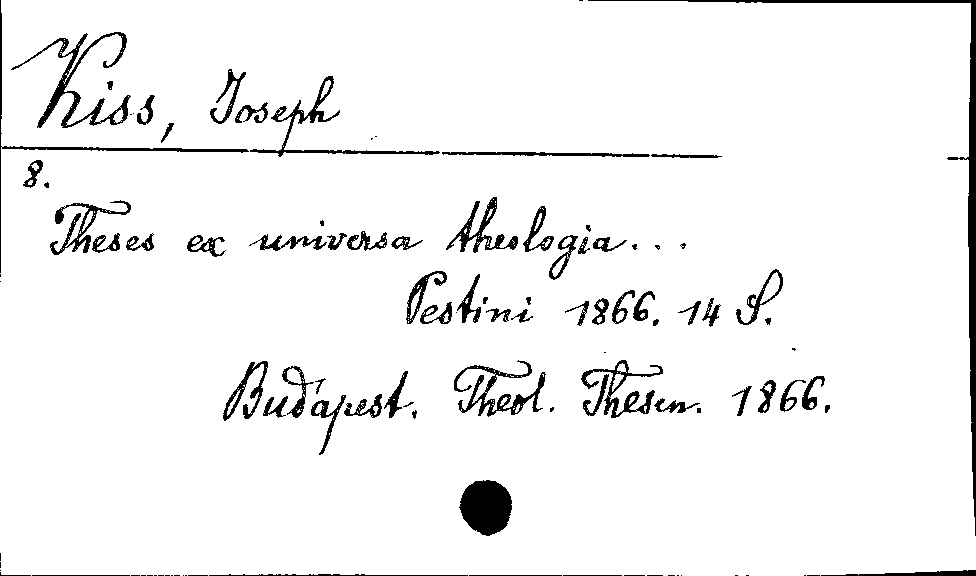 Kiss, Joseph
8.
Theses ex universa theologia...
Pestini 1866. 14 S.
Budapest. Theol. Thesen. 1866.